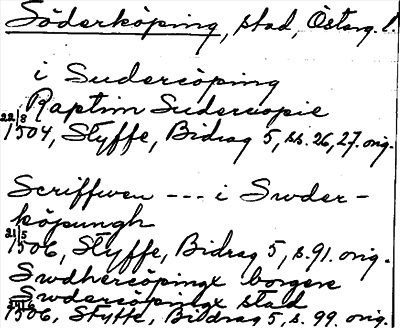 Söderköping, stad, Österg. l.
i Sudercöping
Raptim Sudercopie
22/8 1504, Styffe, Bidrag 5, ss. 26, 27. orig.
Scriffwen --- i Swder-
köpungh
21/5 1506, Styffe, Bidrag 5, s. 91. orig.
Swdhercöpingx borgere
Swdercöpingx stad
1506, Styffe, Bidrag 5, s. 99. orig.